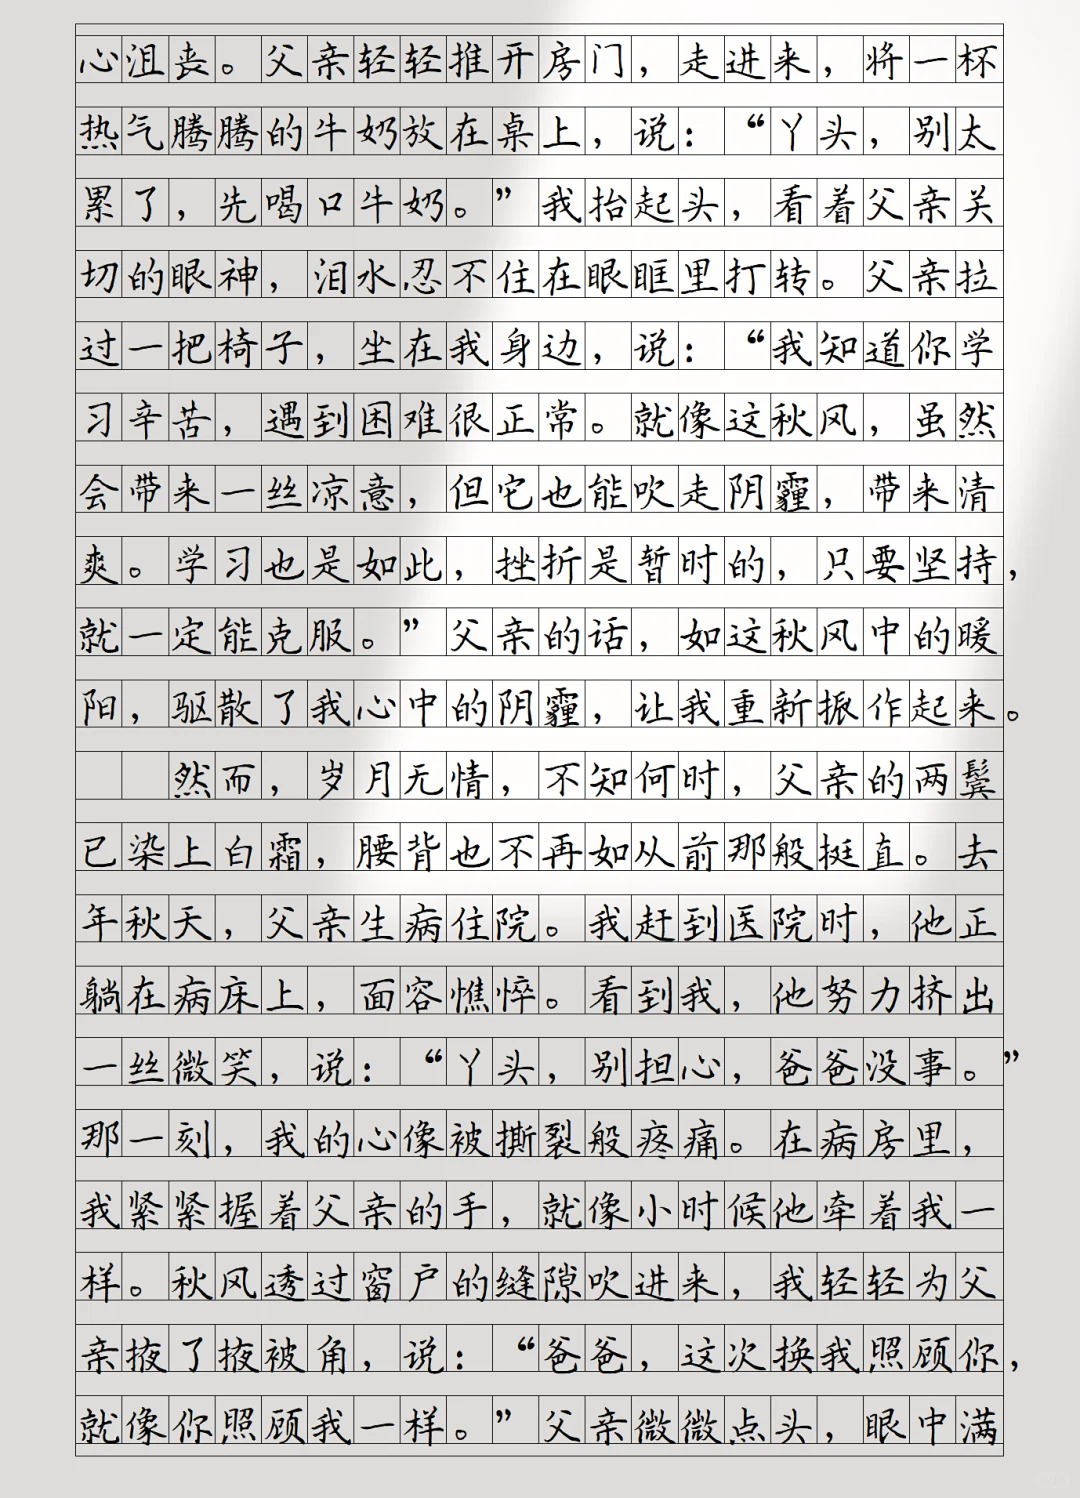 心沮丧。父亲轻轻推开房门，走进来，将一杯
热气腾腾的牛奶放在桌上，说：“丫头，别太
累了，先喝口牛奶。”我抬起头，看着父亲关
切的眼神，泪水忍不住在眼眶里打转。父亲拉
过一把椅子，坐在我身边，说：“我知道你学
习辛苦，遇到困难很正常。就像这秋风，虽然
会带来一丝凉意，但它也能吹走阴霾，带来清
爽。学习也是如此，挫折是暂时的，只要坚持，
就一定能克服。”父亲的话，如这秋风中的暖
阳，驱散了我心中的阴霾，让我重新振作起来。
然而，岁月无情，不知何时，父亲的两鬓
已染上白霜，腰背也不再如从前那般挺直。去
年秋天，父亲生病住院。我赶到医院时，他正
躺在病床上，面容憔悴。看到我，他努力挤出
一丝微笑，说：“丫头，别担心，爸爸没事。”
那一刻，我的心像被撕裂般疼痛。在病房里，
我紧紧握着父亲的手，就像小时候他牵着我一
样。秋风透过窗户的缝隙吹进来，我轻轻为父
亲掖了掖被角，说：“爸爸，这次换我照顾你，
就像你照顾我一样。”父亲微微点头，眼中满